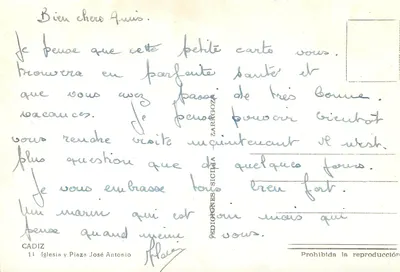 Bien chers amis.
Je pense que cette petite carte vous
trouvera en parfaite santé et
que vous avez passé de très bonne
vacances. Je pense pouvoir bientôt
vous rendre visite maintenant il n'est
plus question que de quelques jours.
Je vous embrasse tous bien fort.
Un marin qui est loin mais qui
pense quand même vous.
Alain
CADIZ
11 Iglesia y Plaza José Antonio
Prohibida la reproducción
EDICIONES SICILIA ZARAGOZA